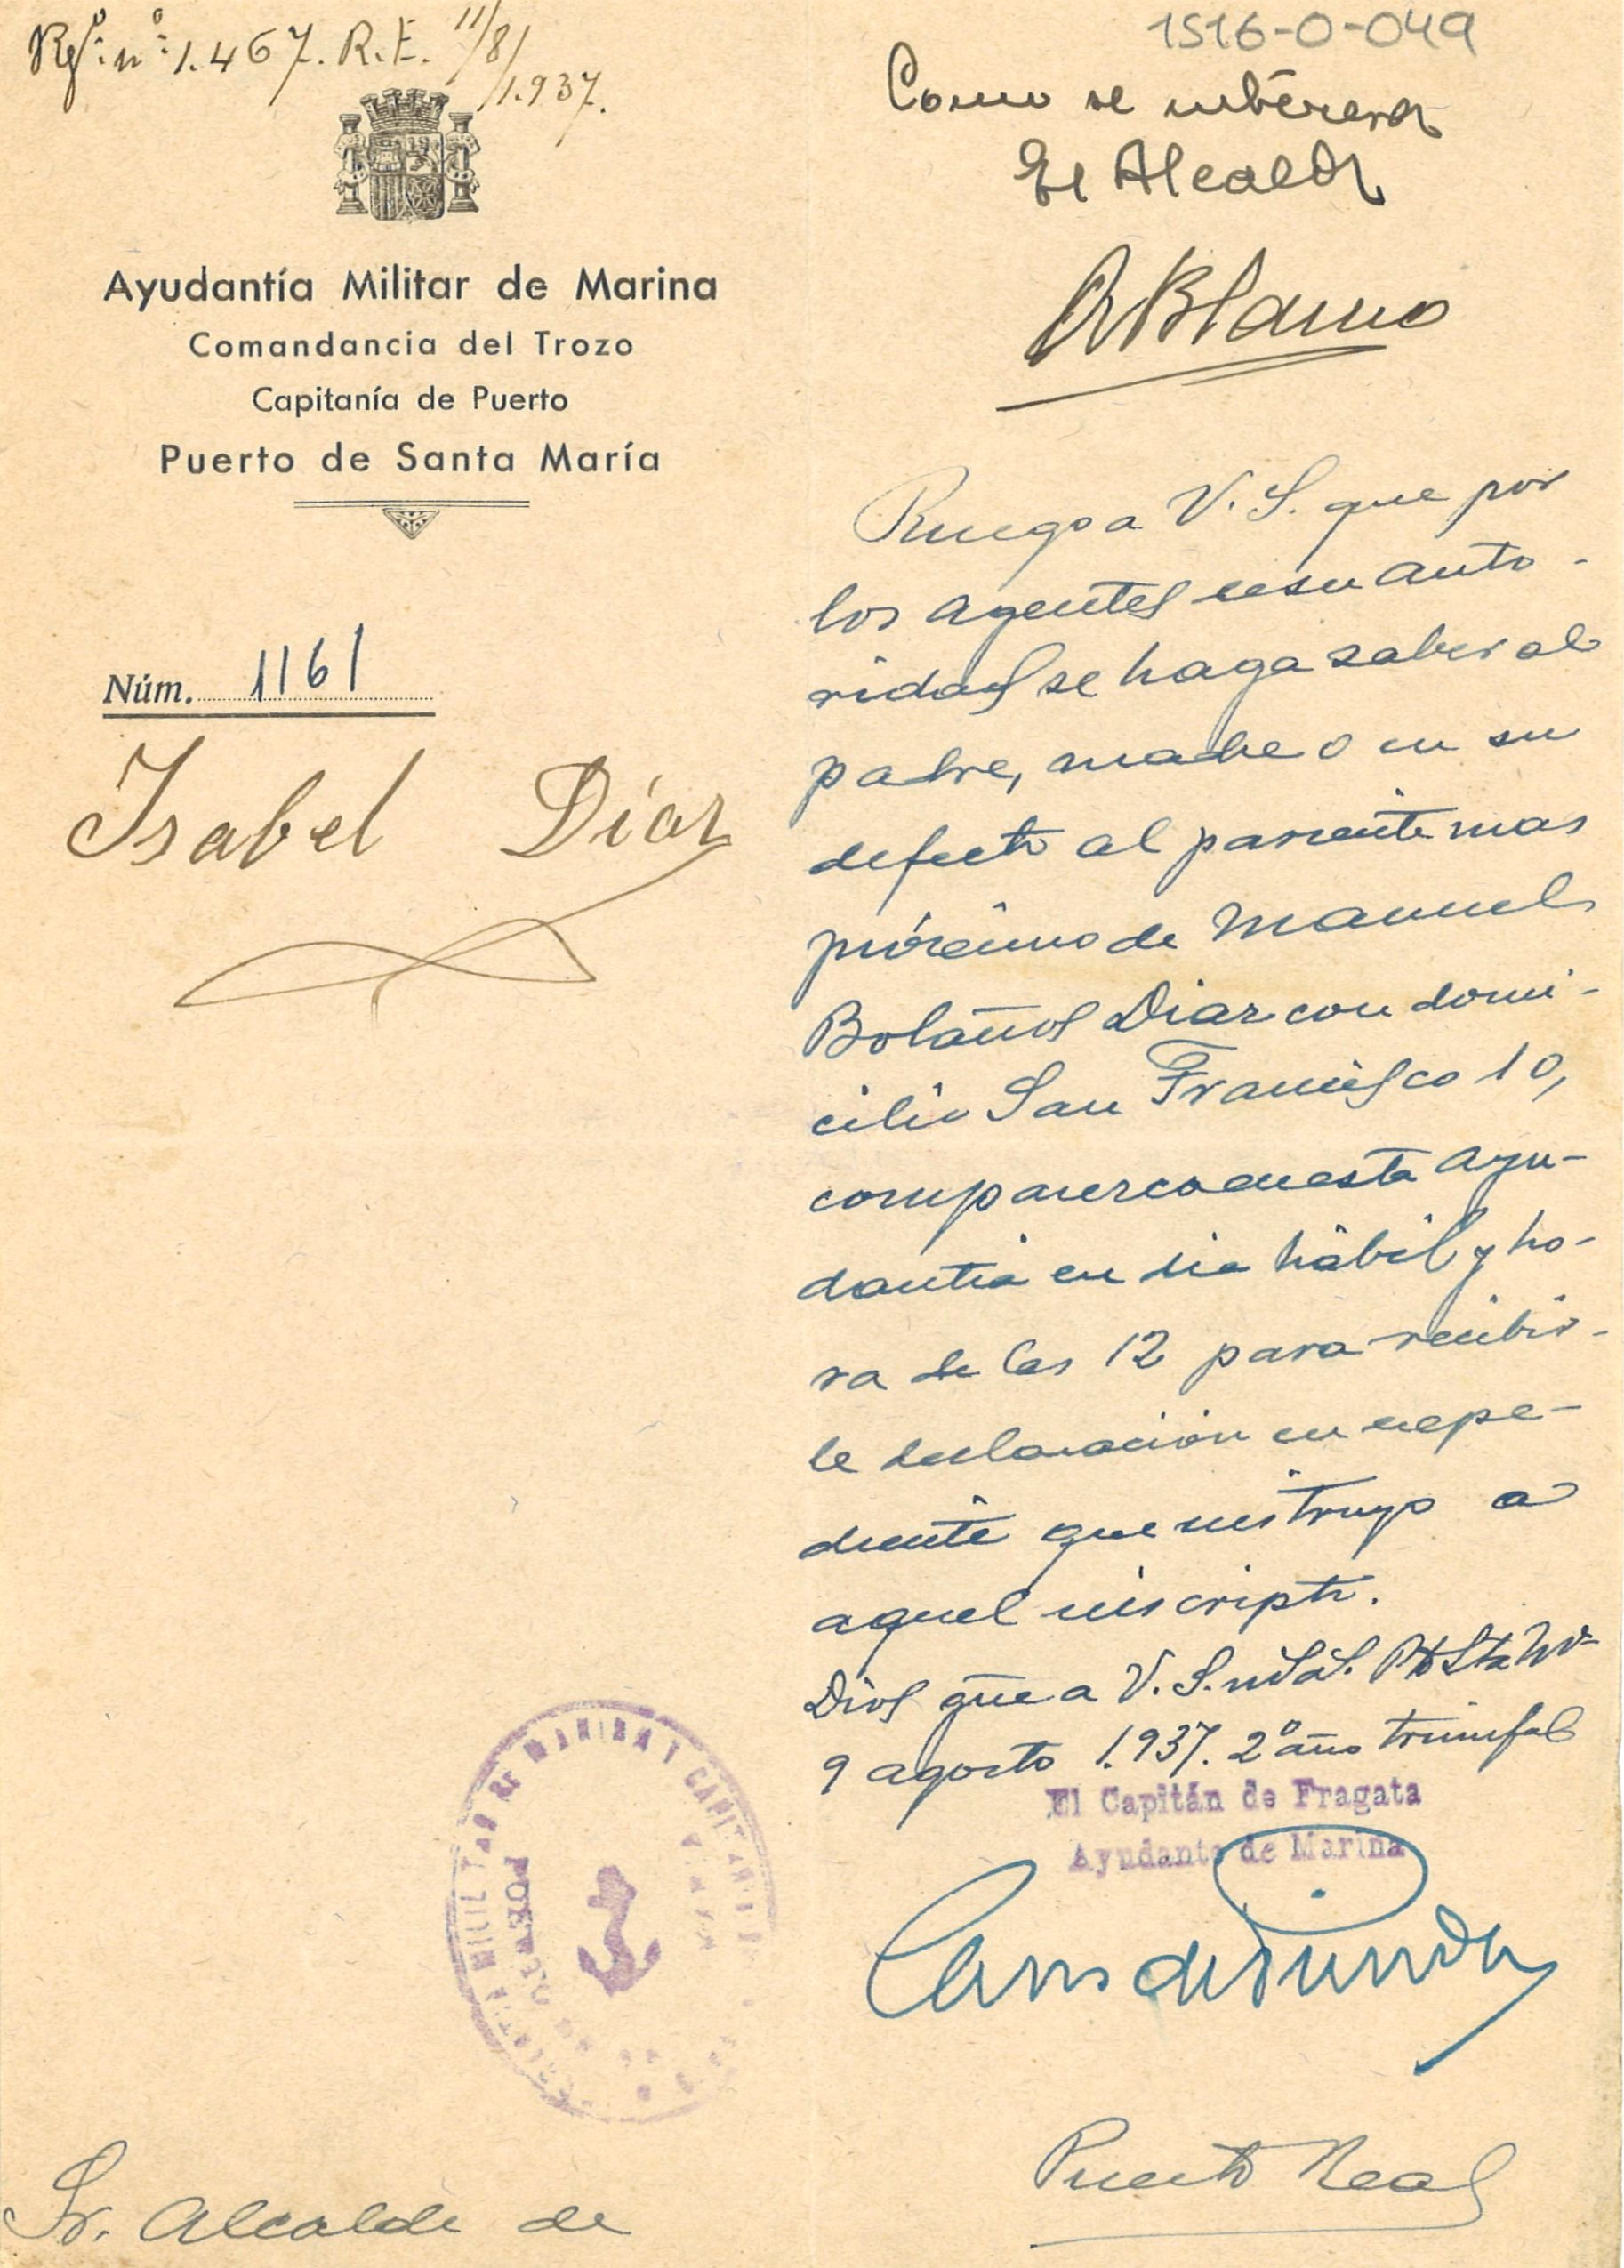 Rgº. nº: 1.467. R.E. 11/8/1.937.
1516-0-049
Como se interesa
El Alcalde
Ayudantía Militar de Marina
Comandancia del Trozo
Capitanía de Puerto
Puerto de Santa María
Núm. 1161
Isabel Díaz
Ruego a V. S. que por
los agentes de su auto-
ridad se haga saber al
padre, madre o en su
defecto al pariente mas
próximo de Manuel
Bolaños Diaz con domi-
cilio San Francisco 10,
comparezca en esta Ayu-
dantia en dia hábil y ho-
ra de las 12 para recibir-
le declaración en expe-
diente que instruyo a
aquel inscripto.
Dios gûe a V. S. Pto Sta Mª
9 agosto 1.937. 2º año triunfal
El Capitán de Fragata
Ayudante de Marina
Sr. Alcalde de
Puerto Real